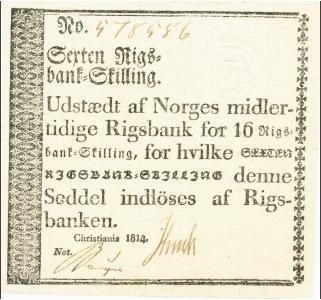 No. 578586
Sexten Rigs-
bank-Skilling.
Udstædt af Norges midler-
tidige Rigsbank for 16 Rigs-
bank-Skilling, for hvilke SEXTEN
RIGSBANK-SKILLING denne
Seddel indlöses af Rigs-
banken.
Christiania 1814.
Not.